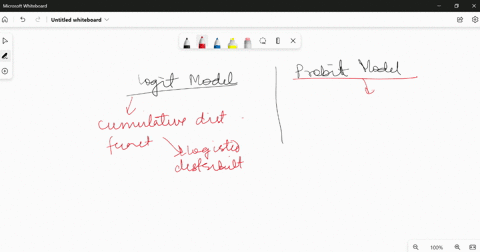 Microsoft Whiteboard
Untitled whiteboard
Logit Model
Probit Model
cumulative dist.
funct
Logistic
100%